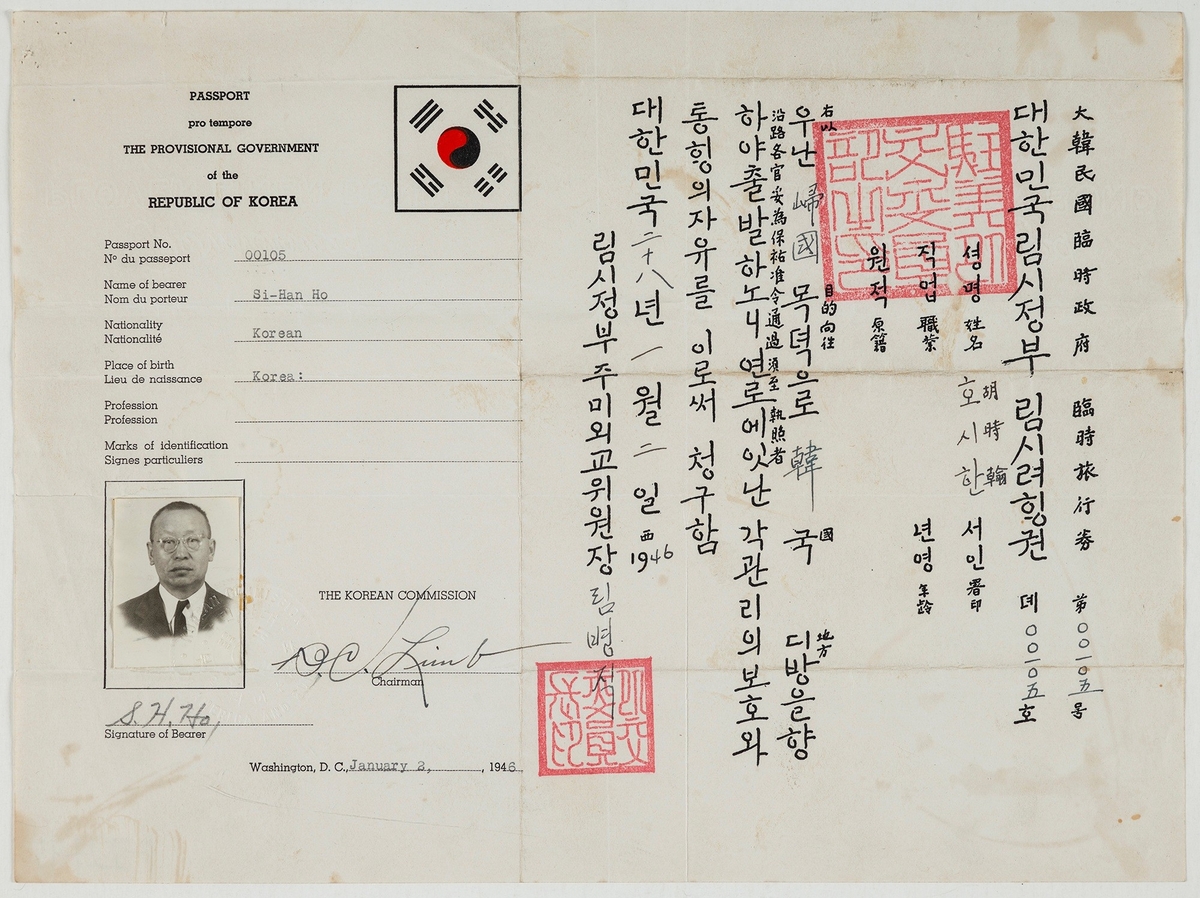 PASSPORT
pro tempore
THE PROVISIONAL GOVERNMENT
of the
REPUBLIC OF KOREA
Passport No.
Nº du passeport 00105
Name of bearer
Nom du porteur Si-Han Ho
Nationality
Nationalité Korean
Place of birth
Lieu de naissance Korea:
Profession
Profession
Marks of identification
Signes particuliers
THE KOREAN COMMISSION
D.C. Limb
Chairman
S. H. Ho,
Signature of Bearer
Washington, D. C., January 2, , 1946
大韓民國臨時政府 臨時旅行券 第〇〇一〇五号
대한민국림시정부 림시려힝권 뎨〇〇一〇五호
셩명 姓名 호시한 胡時翰 서인 署印
직업 職業 년영 年齡
원적 原籍
右以 目的向往 國 地方
우난 歸國 목뎍으로 韓 국 디방을향
沿路各官妥為保祐准令通過須至執照者
하야출발하노니연로에잇난 각관리의보호와
통힝의자유를 이로써 청구함
대한민국二十八년 一월 二일 西1946
림시정부주미외교위원장 림병직
駐美外交委員部之印
外交委員長印